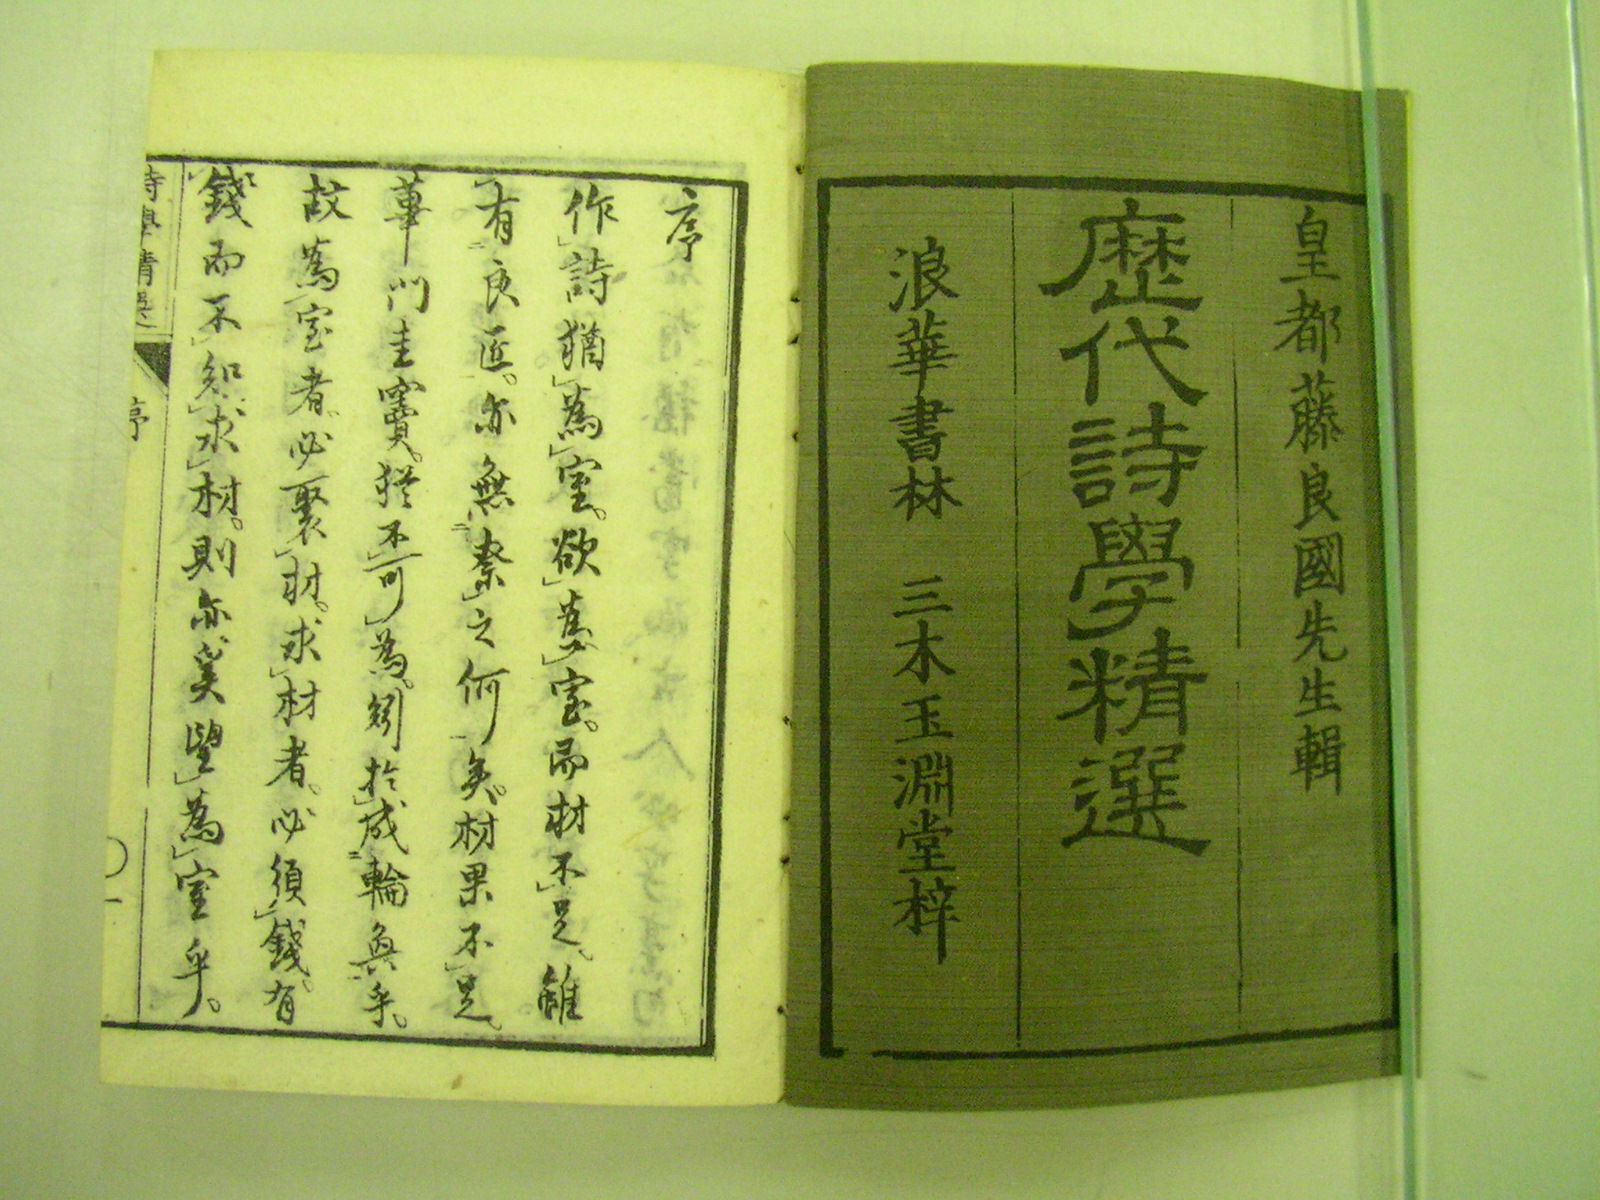 皇都藤良國先生輯
歷代詩學精選
浪華書林 三木玉淵堂梓
序
作詩猶爲室。欲爲室。而材不足。雖
有良匠。亦無柰之何矣。材果不足。
蓽門圭竇。猶不可爲。矧於成輪奐乎。
故爲室者。必聚材。求材者。必須錢。有
錢而不知求材。則亦奚望爲室乎。
詩學精選
序